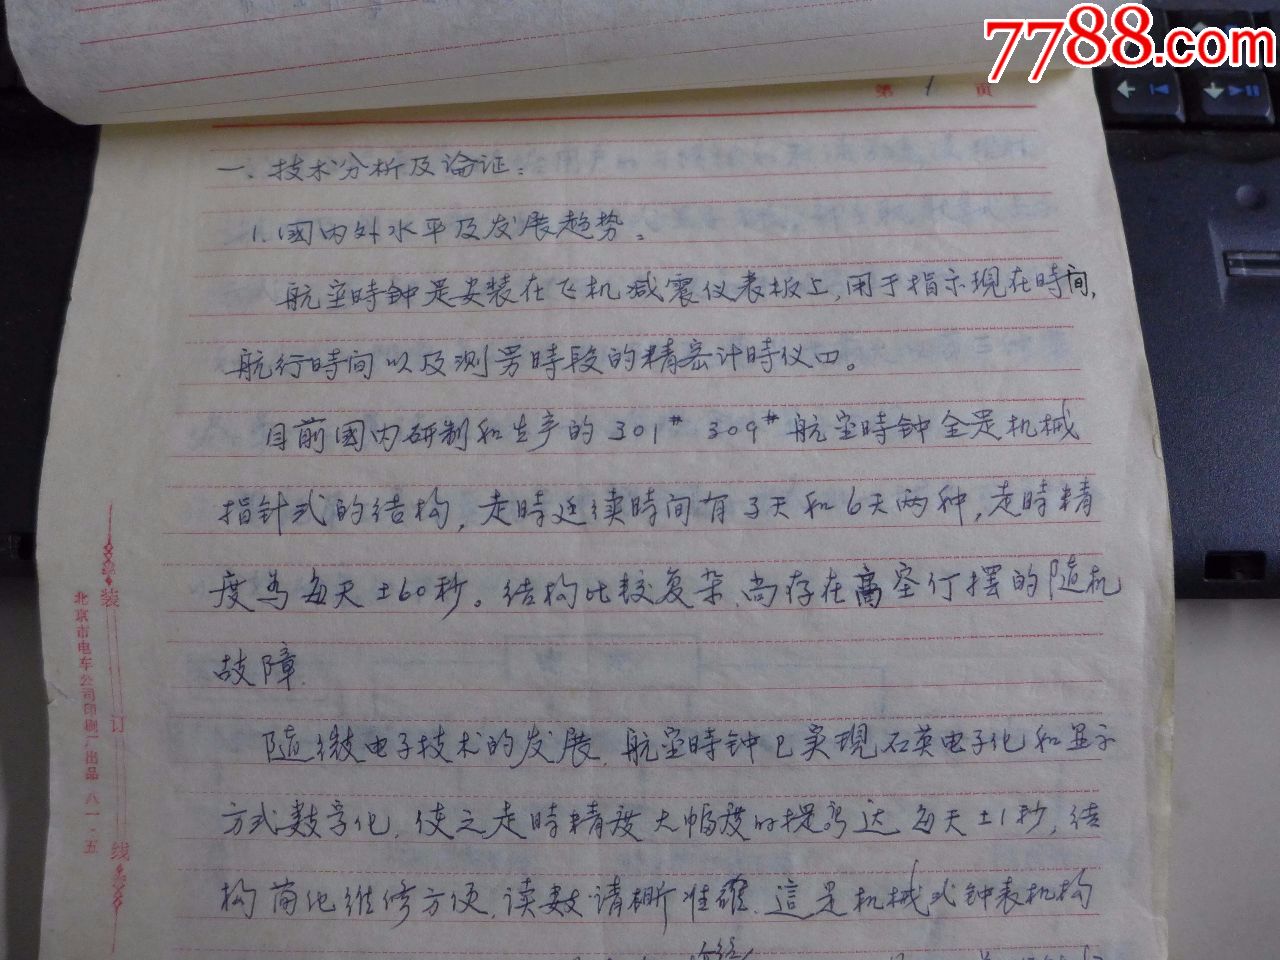 7788.com
第 1 页
一、技术分析及论证：
1.國内外水平及发展趋势。
航空時钟是安装在飞机减震仪表板上,用于指示現在時间,
航行時间以及测另時段的精密计時仪口。
目前國内研制和生产的301# 309#航空時钟全是机械
指针式的结构,走時延续時间有3天和6天两种,走時精
度为每天±60秒。结构比较复杂、尚存在高空停摆的随机
故障.
随微电子技术的发展,航空時钟已实現石英电子化和显示
方式数字化,使之走時精度大幅度的提高达每天±1秒,结
构简化维修方便,读数清晰准确.這是机械式钟表机构
装订线
北京市电车公司印刷厂出品 八一·五